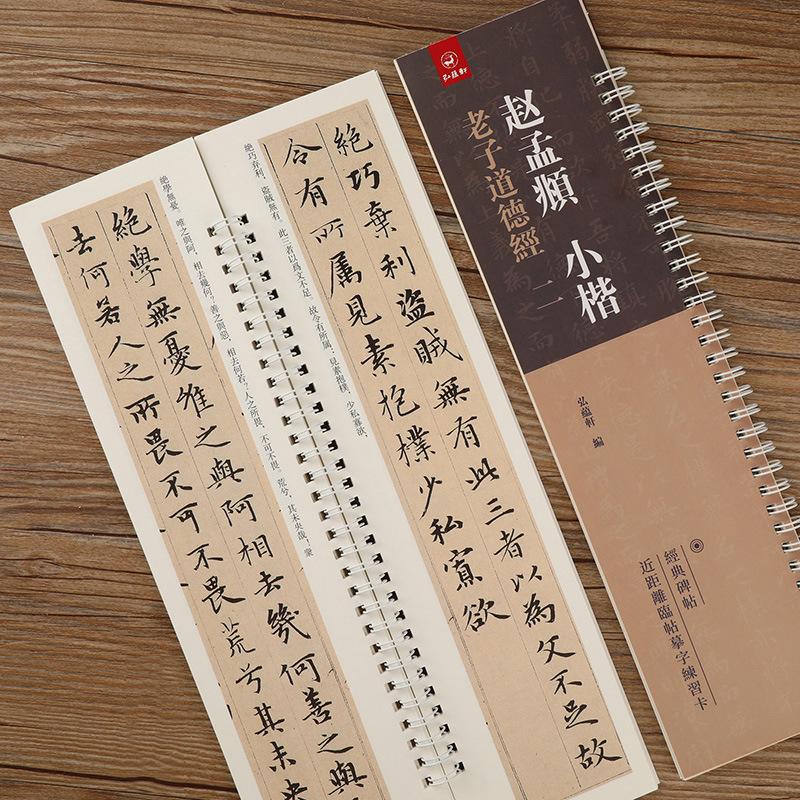 弘蕴軒
赵孟頫 小楷
老子道德經 二
弘蘊軒 編
經典碑帖
近距離臨帖摹字練習卡
絶巧棄利盜賊無有此三者以為文不足故
令有所属見素抱樸少私寡欲
絶巧弃利，盜賊無有。此三者以爲文不足。故令有所屬：見素抱樸，少私寡欲，
絶學無憂唯之與阿相去幾何善之與
去何若人之所畏不可不畏荒兮其未央
絶學無憂。唯之與阿，相去幾何？善之與惡，相去何若？人之所畏，不可不畏。荒兮，其未央哉！衆